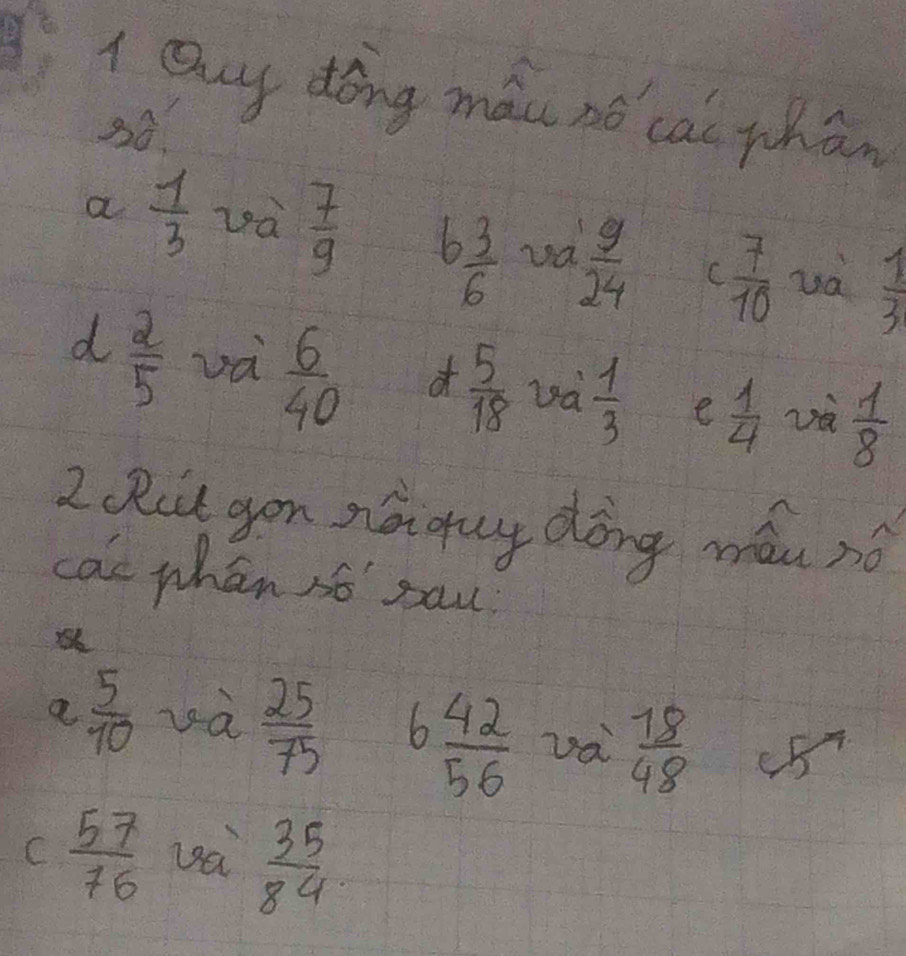 1 Quy đồng mẫu số các phân
số.
a 1/3 và 7/9 b 3/6 và 9/24 c 7/10 và
d 2/5 và 6/40 đ 5/18 và 1/3 e 1/4 và 1/8
2 Rút gọn rồi quy đồng mẫu số
các phân số sau:
a 5/10 và 25/75 b 42/56 và 18/48
c 57/76 và 35/84.